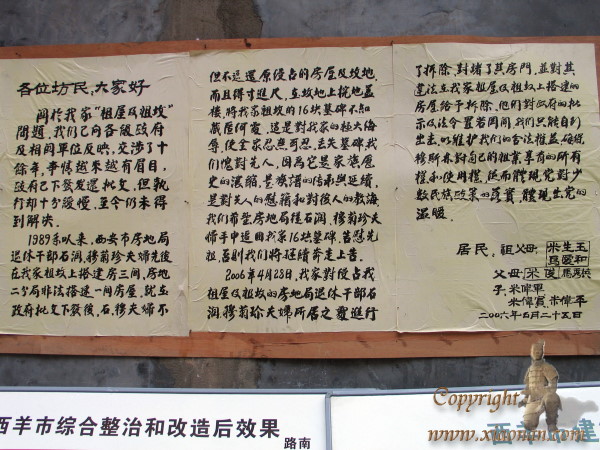 各位坊民,大家好
关於我家"祖屋及祖坟"
問题,我们已向各级政府
及相関单位反映,交涉了十
餘年,事情越来越有眉目,
政府已下發发還批文,但執
行却十分缓慢,至今仍未得
到解决。
1989年以来,西安市房地局
退休干部石润,穆菊珍夫婦先後
在我家祖坟上搭建房三间,房地
二分局非法搭建一间房屋,就在
政府批文下發後,石.穆夫婦不
但不退還原侵占的房屋及坟地,
而且得寸進尺,在坟地上挖地蓋
楼,將我家祖坟的16块墓碑不知
藏匿何處,這是對我家的極大侮
辱,使全家忍無可忍,丢失墓碑我
们愧對先人,因為它是家族歷
史的濃缩,是族譜的传承與延續,
是對先人的慰藉和對後人的教诲,
我们希望房地局從石润,穆菊珍夫
婦手中追回我家16块墓碑,告慰先
祖,否则我们將继續奔走上告。
2006年4月23日,我家對侵占我
祖屋及祖坟的房地局退休干部石
润,穆菊珍夫婦所居之處進行
了拆除,封堵了其房門,並對其
違法在我家祖屋及祖坟上搭建的
房屋给于拆除,他们對政府的批
示及法令置若罔闻,我们只能自行
出击,以维护我们的合法權益,確保
穆斯林對自己的祖業享有的所有
權和使用權,從而體现党對少
數民族政策的落實,體现出党的
温暖。
居民:祖父母:米生玉
馬愛和
父母:米俊
子:米偉軍
米偉賓 米偉平
二00六年四月二十五日
西羊市综合整治和改造后效果
路南
Copyright